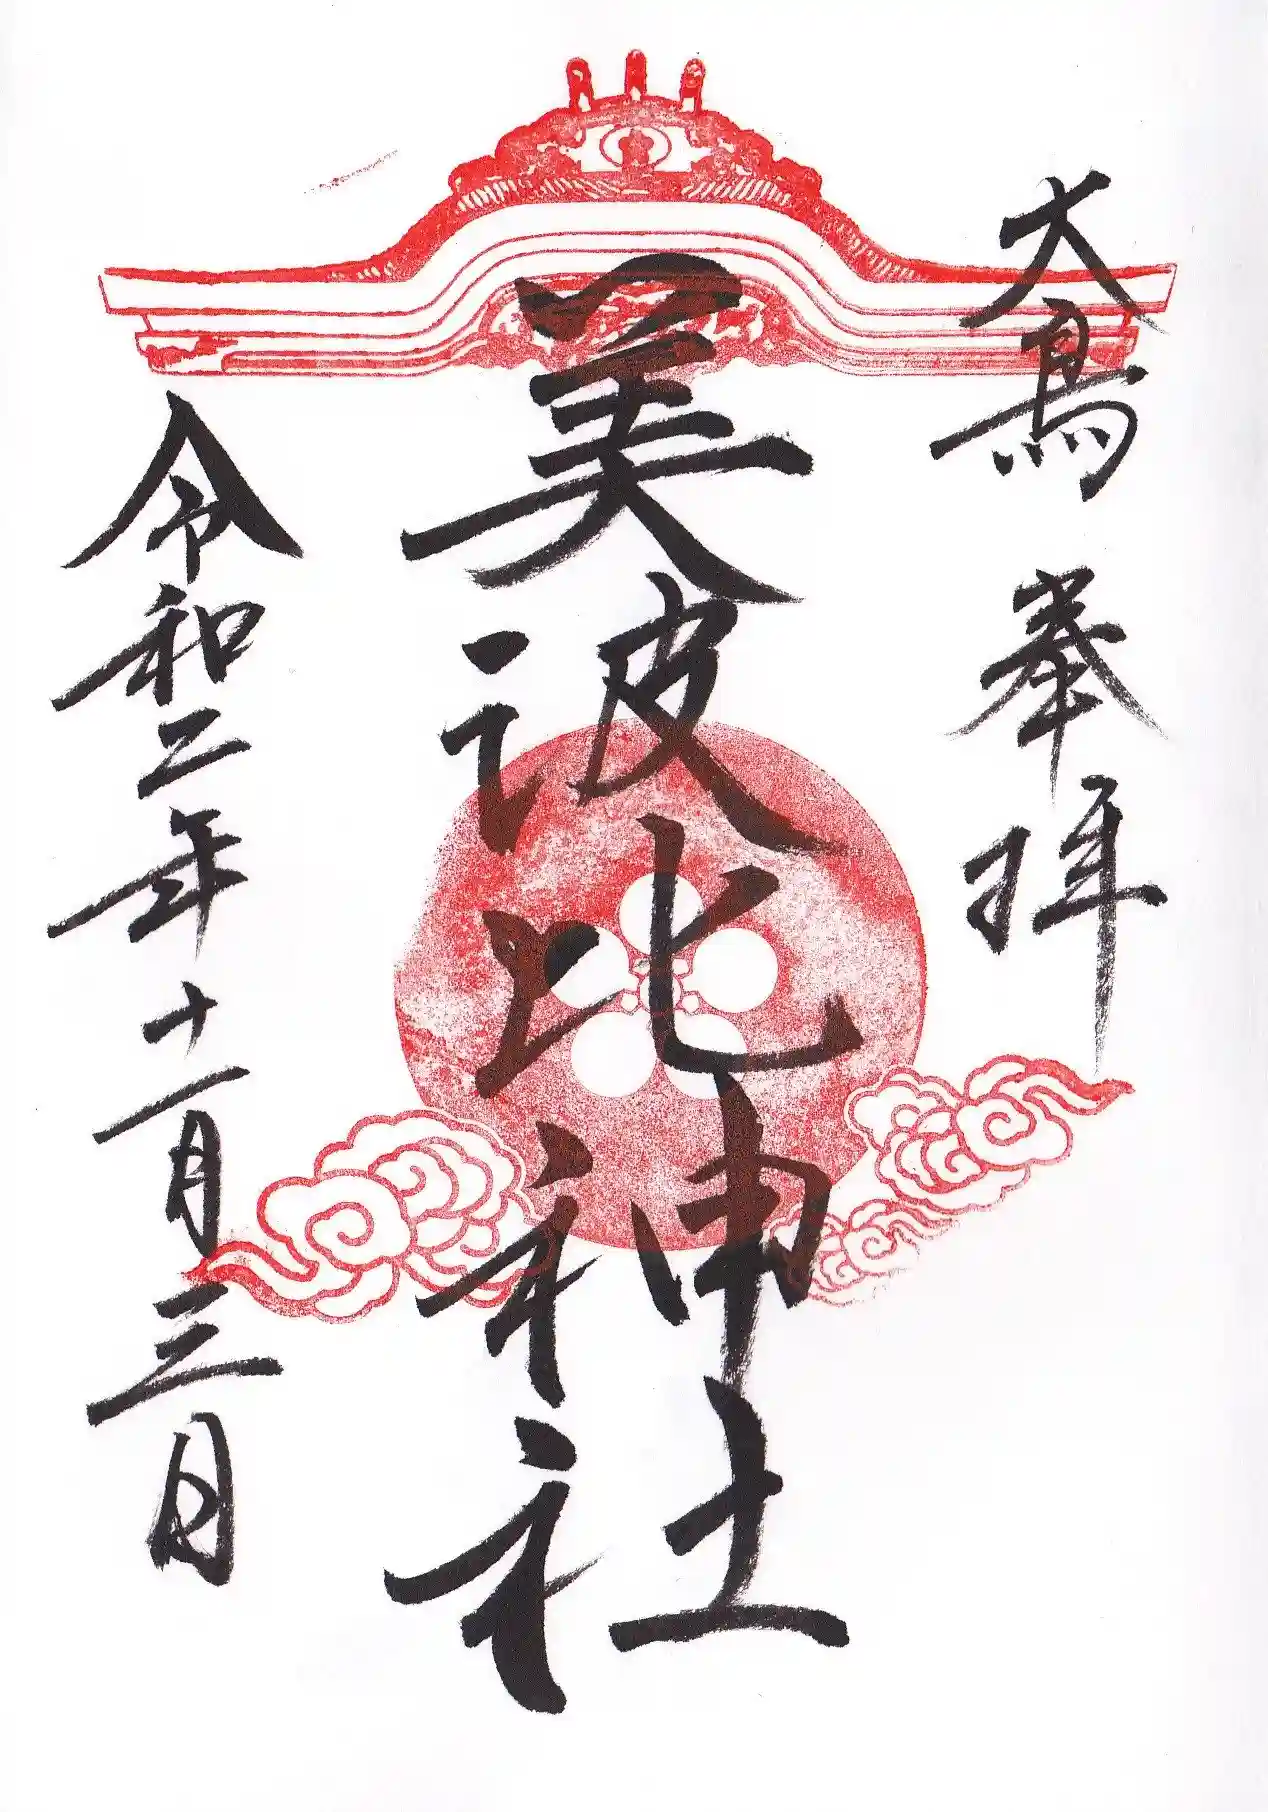 大鳥 奉拝
美波比神社
令和二年十一月三日